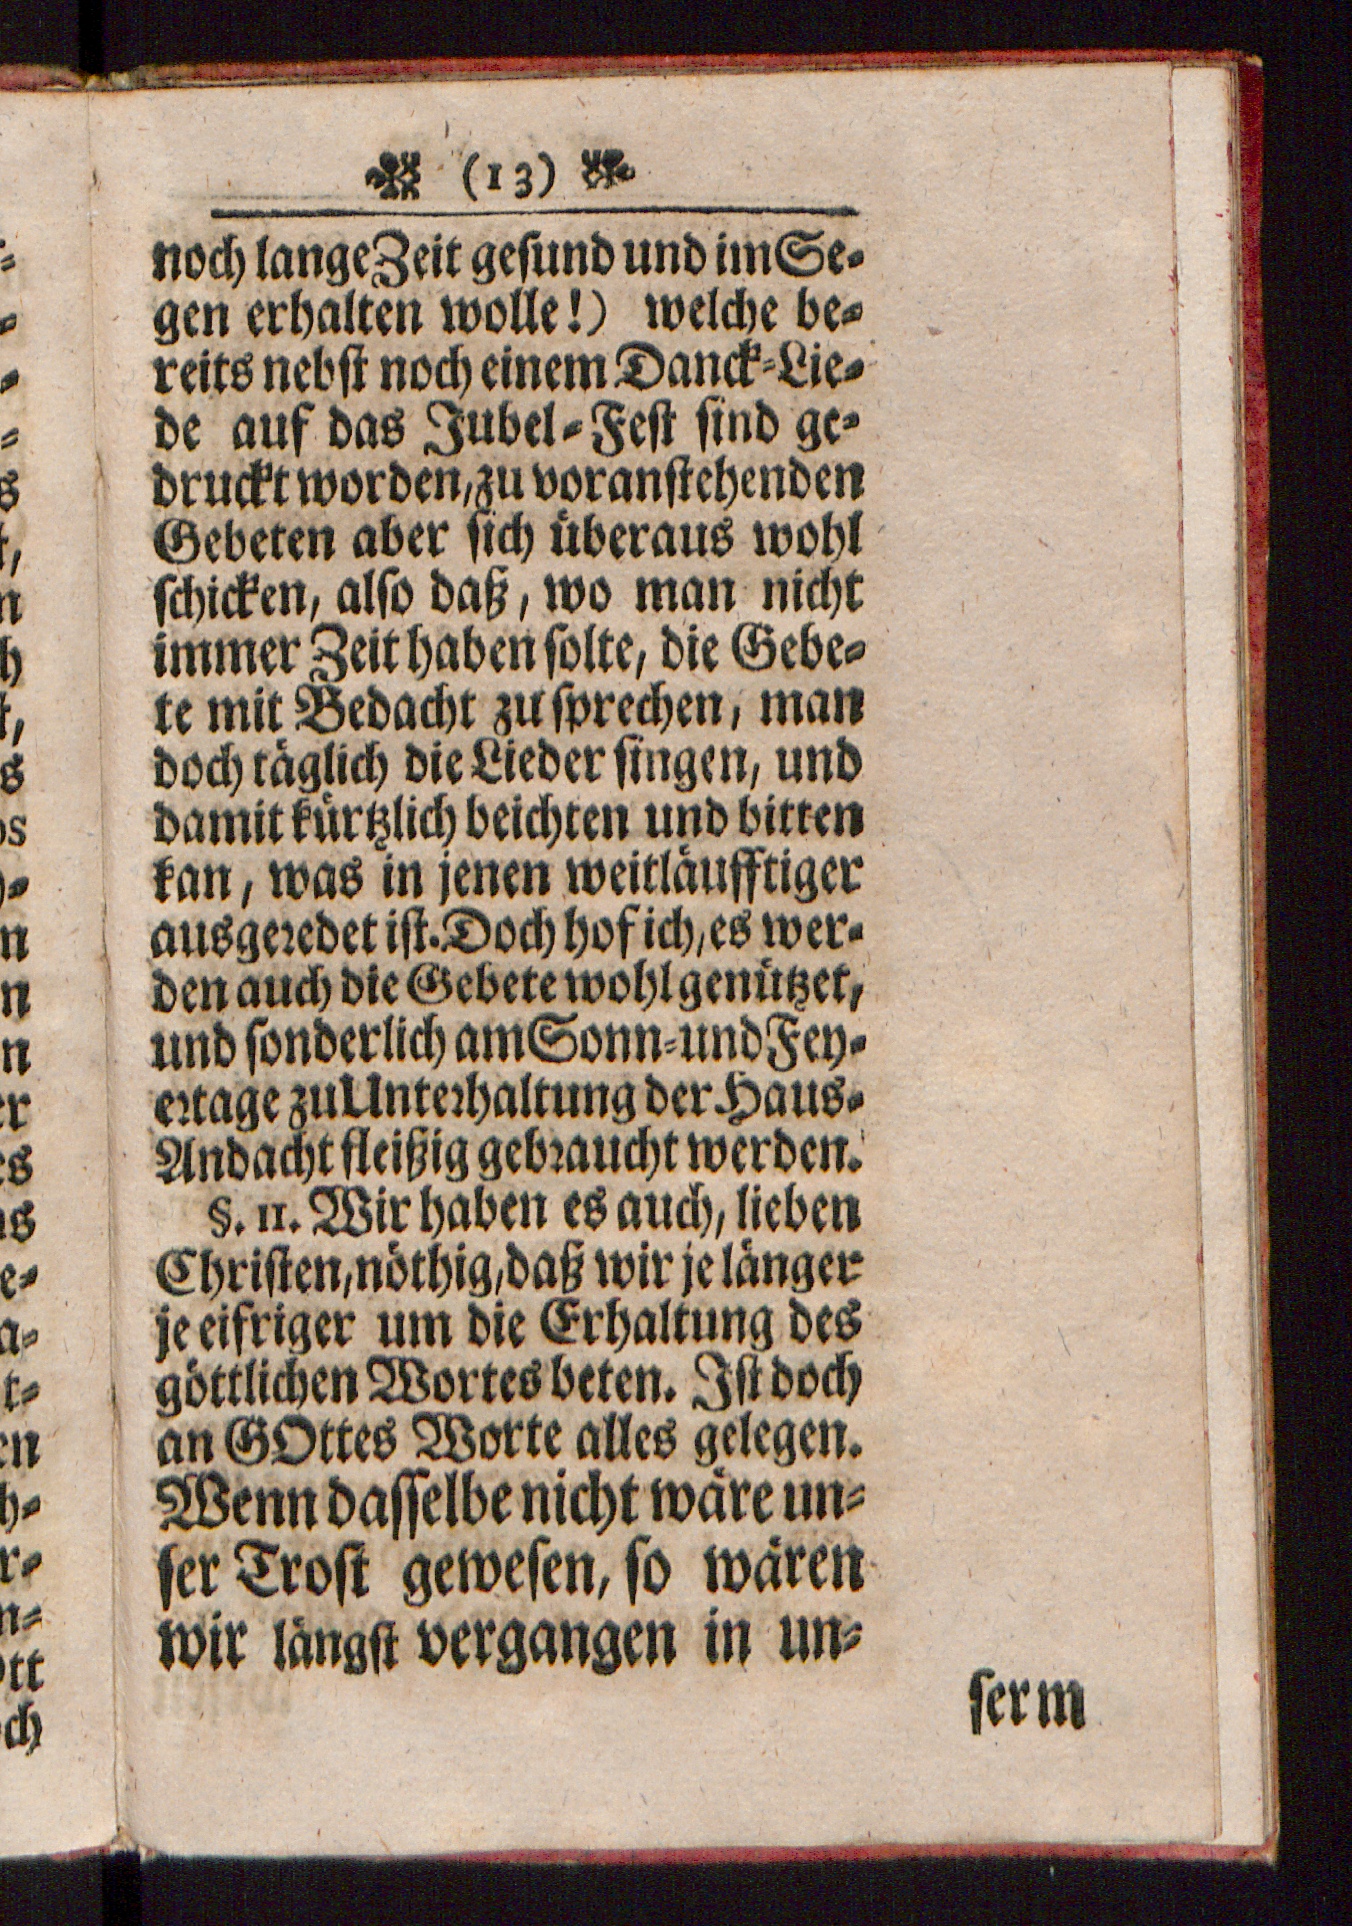 (13)
noch lange Zeit gesund und im Se-
gen erhalten wolle!) welche be-
reits nebst noch einem Danck-Lie-
de auf das Jubel-Fest sind ge-
druckt worden, zu voranstehenden
Gebeten aber sich überaus wohl
schicken, also daß, wo man nicht
immer Zeit haben solte, die Gebe-
te mit Bedacht zu sprechen, man
doch täglich die Lieder singen, und
damit kürtzlich beichten und bitten
kan, was in jenen weitläufftiger
ausgeredet ist. Doch hof ich, es wer-
den auch die Gebete wohl genützet,
und sonderlich am Sonn- und Fey-
ertage zu Unterhaltung der Haus-
Andacht fleißig gebraucht werden.
§. 11. Wir haben es auch, lieben
Christen, nöthig, daß wir je länger
je eifriger um die Erhaltung des
göttlichen Wortes beten. Ist doch
an GOttes Worte alles gelegen.
Wenn dasselbe nicht wäre un-
ser Trost gewesen, so wären
wir längst vergangen in un-
serm